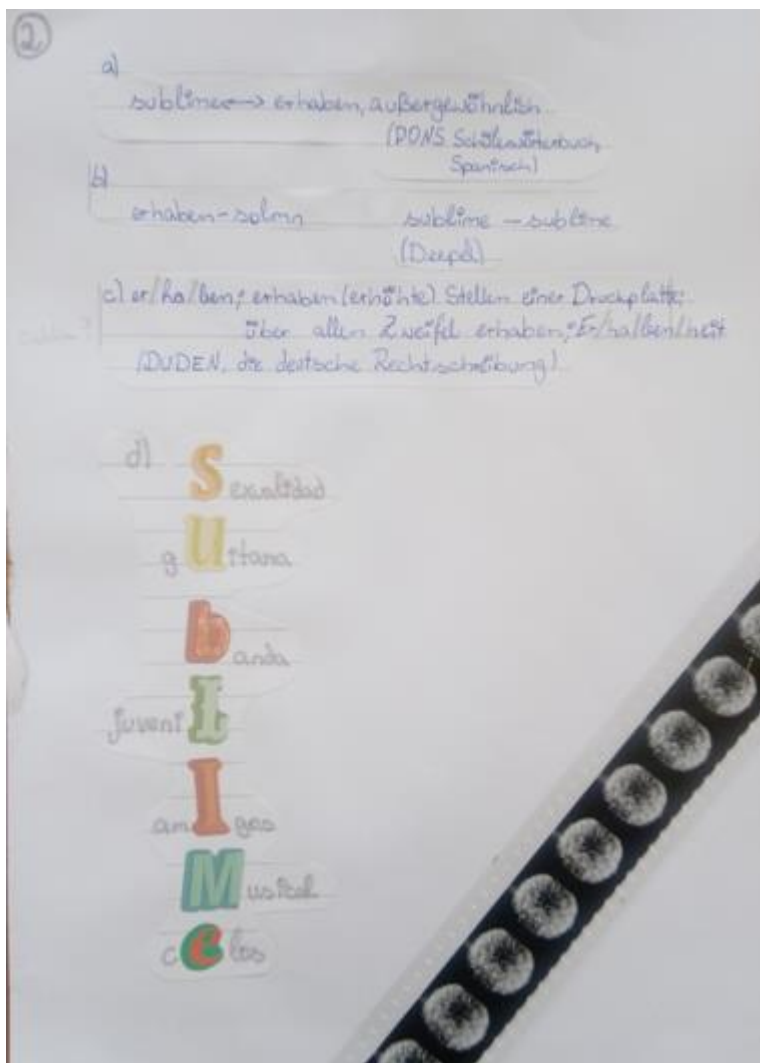 2
a)
sublime <-> erhaben, außergewöhnlich
(PONS Schülerwörterbuch,
Spanisch)
b)
erhaben - solmn sublime - sublime
(Deepl)
c) er/ha/ben; erhaben (erhöhte) Stellen einer Druckplatte;
über allen Zweifel erhaben; Er/ha/ben/heit
(DUDEN, die deutsche Rechtschreibung)
d)
Sexualidad
gUitarra
banda
juveniL
amIgas
Musical
celos